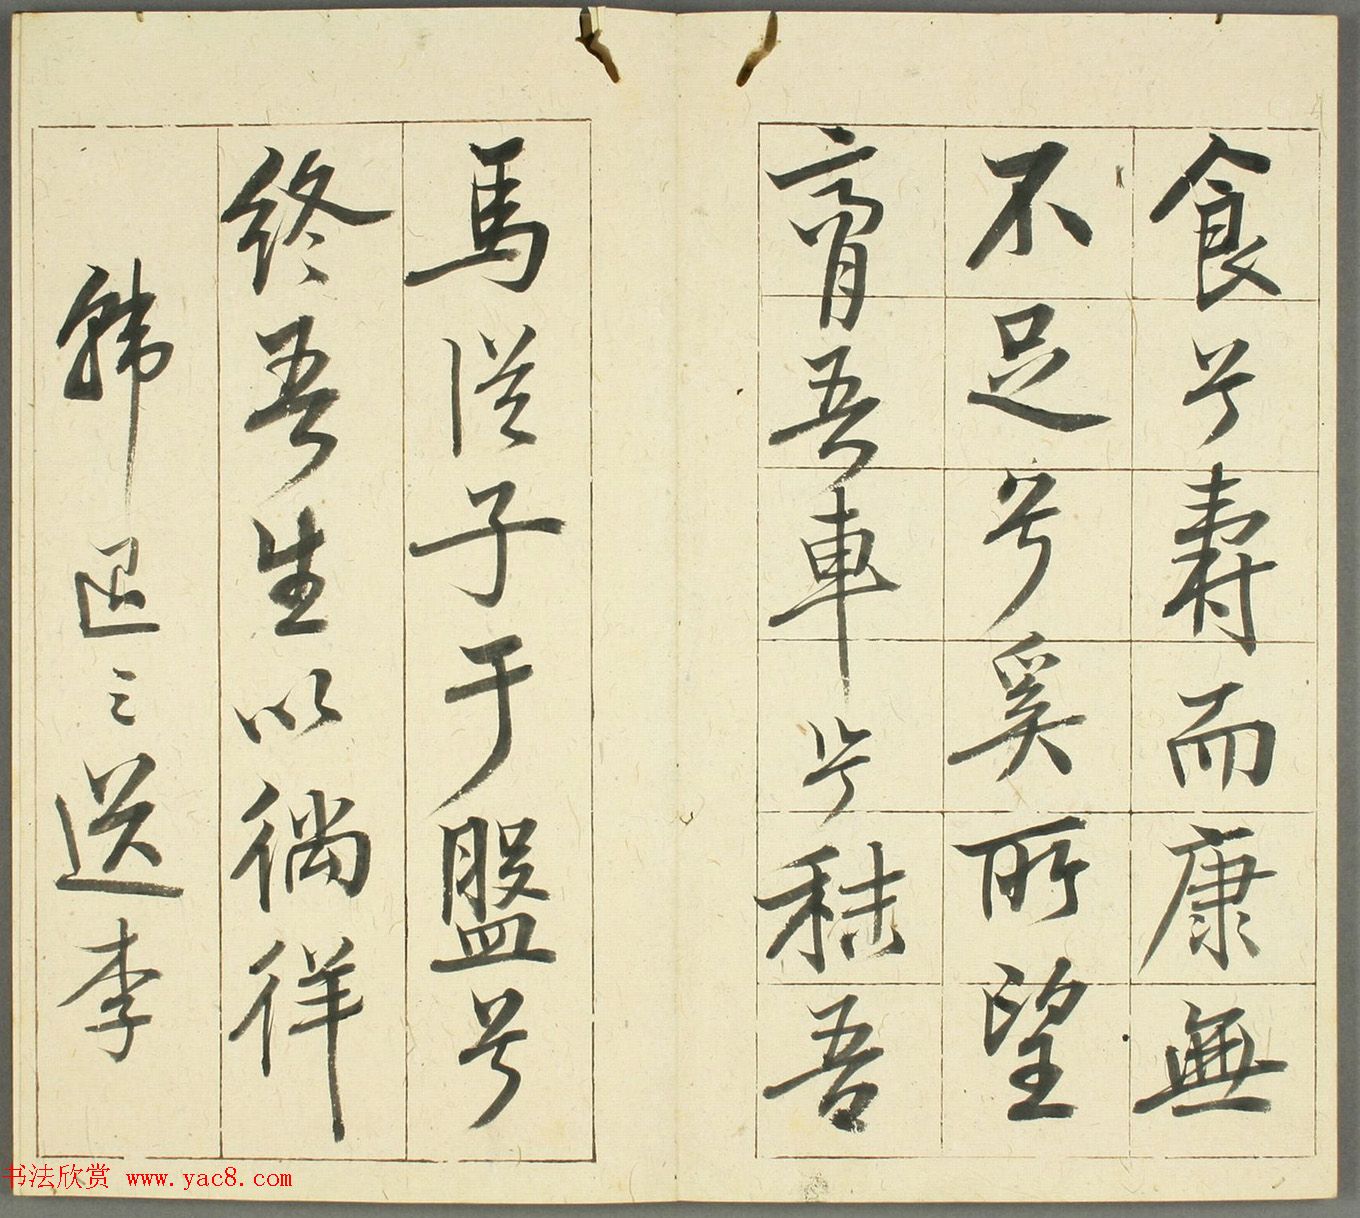 食兮壽而康無
不足兮奚所望
膏吾車兮秣吾
馬從子于盤兮
終吾生以徜徉
韓退之送李
书法欣赏 www.yac8.com